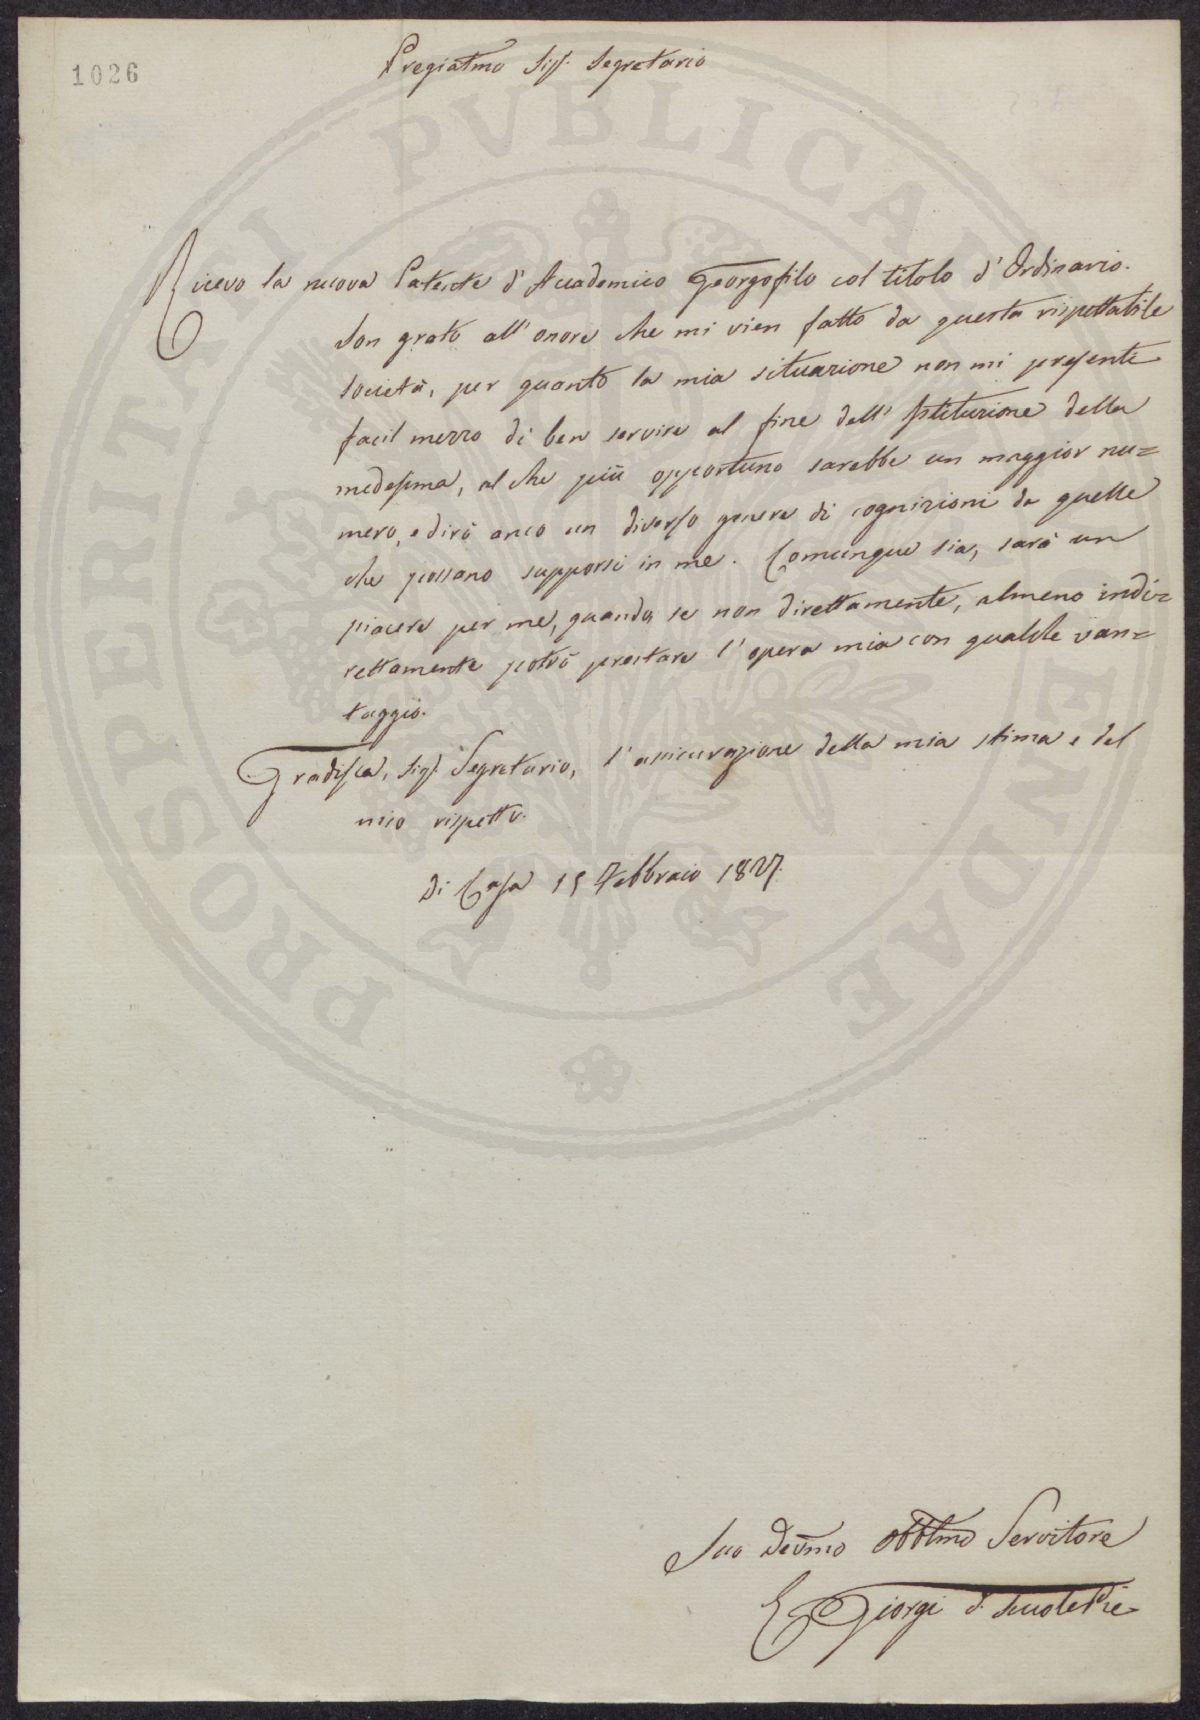 1026
Pregiatmo Sigr. Segretario
Ricevo la nuova Patente d'Accademico Georgofilo col titolo d'Ordinario.
Son grato all'onore che mi vien fatto da questa rispettabile
società, per quanto la mia situazione non mi presenti
facil mezzo di ben servire al fine dell'Istituzione della
medesima, al che più opportuno sarebbe un maggior nu=
mero, e dirò anco un diverso genere di cognizioni da quelle
che possano supporsi in me. Comunque sia, sarà un
piacere per me, quando se non direttamente, almeno indi=
rettamente potrò prestare l'opera mia con qualche van=
taggio.
Gradisca, Sigr. Segretario, l'assicurazione della mia stima e del
mio rispetto.
Di Casa 15 Febbraio 1827.
Suo Devmo Obblmo Servitore
E Giorgi d. Scuole Pie
PROSPERITATI PVBLICAE AVGENDAE